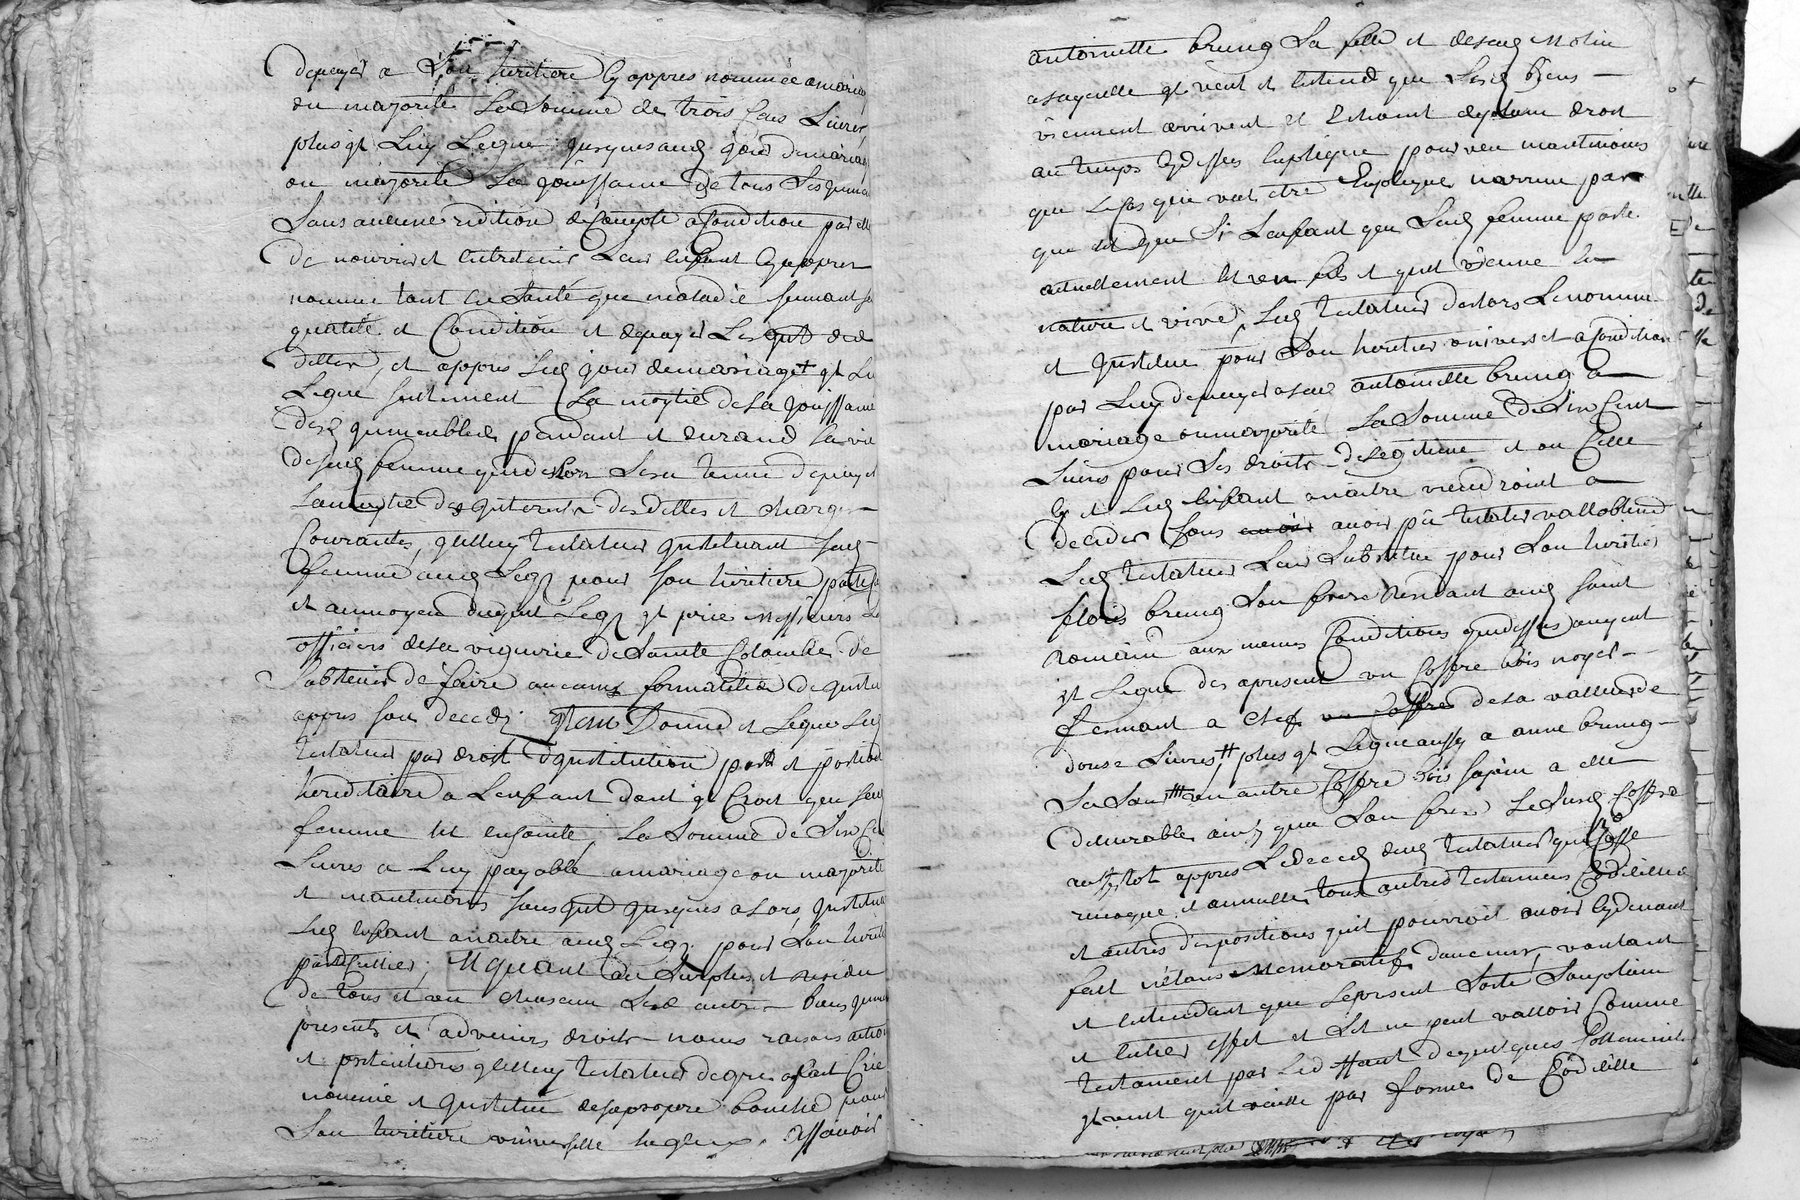 depayer a Son heritiere Cy appres nommée a mariage
ou majorité La Somme de trois Cens Livres
plus gt Luy Legue jusques aud jour demariage
ou majorité La jouissance de tous Ses
Sans aucune rédition deCompte aCondition par elle
de nourrir et entretenir Leur enfant Cy appres
nommé tant en Santé que maladie suivant Sa
qualité et Condition et depayer Les
dettes, et appres Led jour demariage gt Lui
Legue seulement La moytié deLa jouissance
desd jmmeubles pendant et durand La vie
desad femme qui deslors Sera tenue depayer
Lamoytié des jnterests des dettes et charges
Courantes, testateur jnstituant sad
femme aud Legz pour son heritiere
et aumoyen dugent Legz gt prie Messieurs les
officiers dela viguerie de Sainte Colombe de
Sabstenir de faire aucunes formalités de justice
appres son decedz; Donne et Legue Led
testateur par droit djnstitution part et portion
hereditaire a Lenfant dont gt Croit que sad
femme est enseinte La Somme de Six Cens
Livres a Luy payable a mariage ou majorité
et jusques a Lors, jnstituant
Led enfant a naitre aud Legz pour Son heritier
particullier; Et quant au Surplus et residu
de tous et un chascun Ses autres biens
presents et advenirs droits noms raisons actions
et pretentions testateur de gre a fait Crée
nommé et jnstitué desapropre bouche pour
Son heritiere universelle assavoir
antoinette bruneg Sa fille et desad Molin
a Laquelle gt veut et Entend que Sesd biens
viennent arrivent et Echoient deplain droit
au temps Cydessus Expliqué pourveu
que Le Cas que vat être Expliqué narrive pas
que est que Si Lenfant que Sad femme porte
actuellement est un fils et quil vienne a
naitre et vive, Led testateur deslors Le nomme
et jnstitue pour Son heritier universel a Condition
par Luy depayer a Lad antoinette bruneg a
mariage ou majorité La Somme de Six Cent
Livres pour Ses droits de Legitime et ou Celle
Cy et Led enfant a naitre viendroint a
deceder sans avoir pu tester vallablement
Led testateur Leur Substitue pour Son heritier
floris bruneg Son frere residant aud saint
romain aux memes Conditions que dessus auquel
gt Legue des apresent un Coffre bois noyer
fermant a Clef de la valleur de
douse Livres, plus gt Legue aussy a anne bruneg
Sa Sœur un autre Coffre bois Sapin a elle
delivrable ainsy qua Son frere Le Susd Coffre
aussytot appres Ledecedz dud testateur qui Casse
revoque et annulle tous autres testamens Codicille
et autres dispositions quil pourroit avoir Cydevant
fait nétant Memoratif daucuns, voulant
et entendant que Le present Sorte Son plain
et entier effet et Sil ne peut valloir Comme
testament par Led
gt veut quil vaille par forme de Codicille